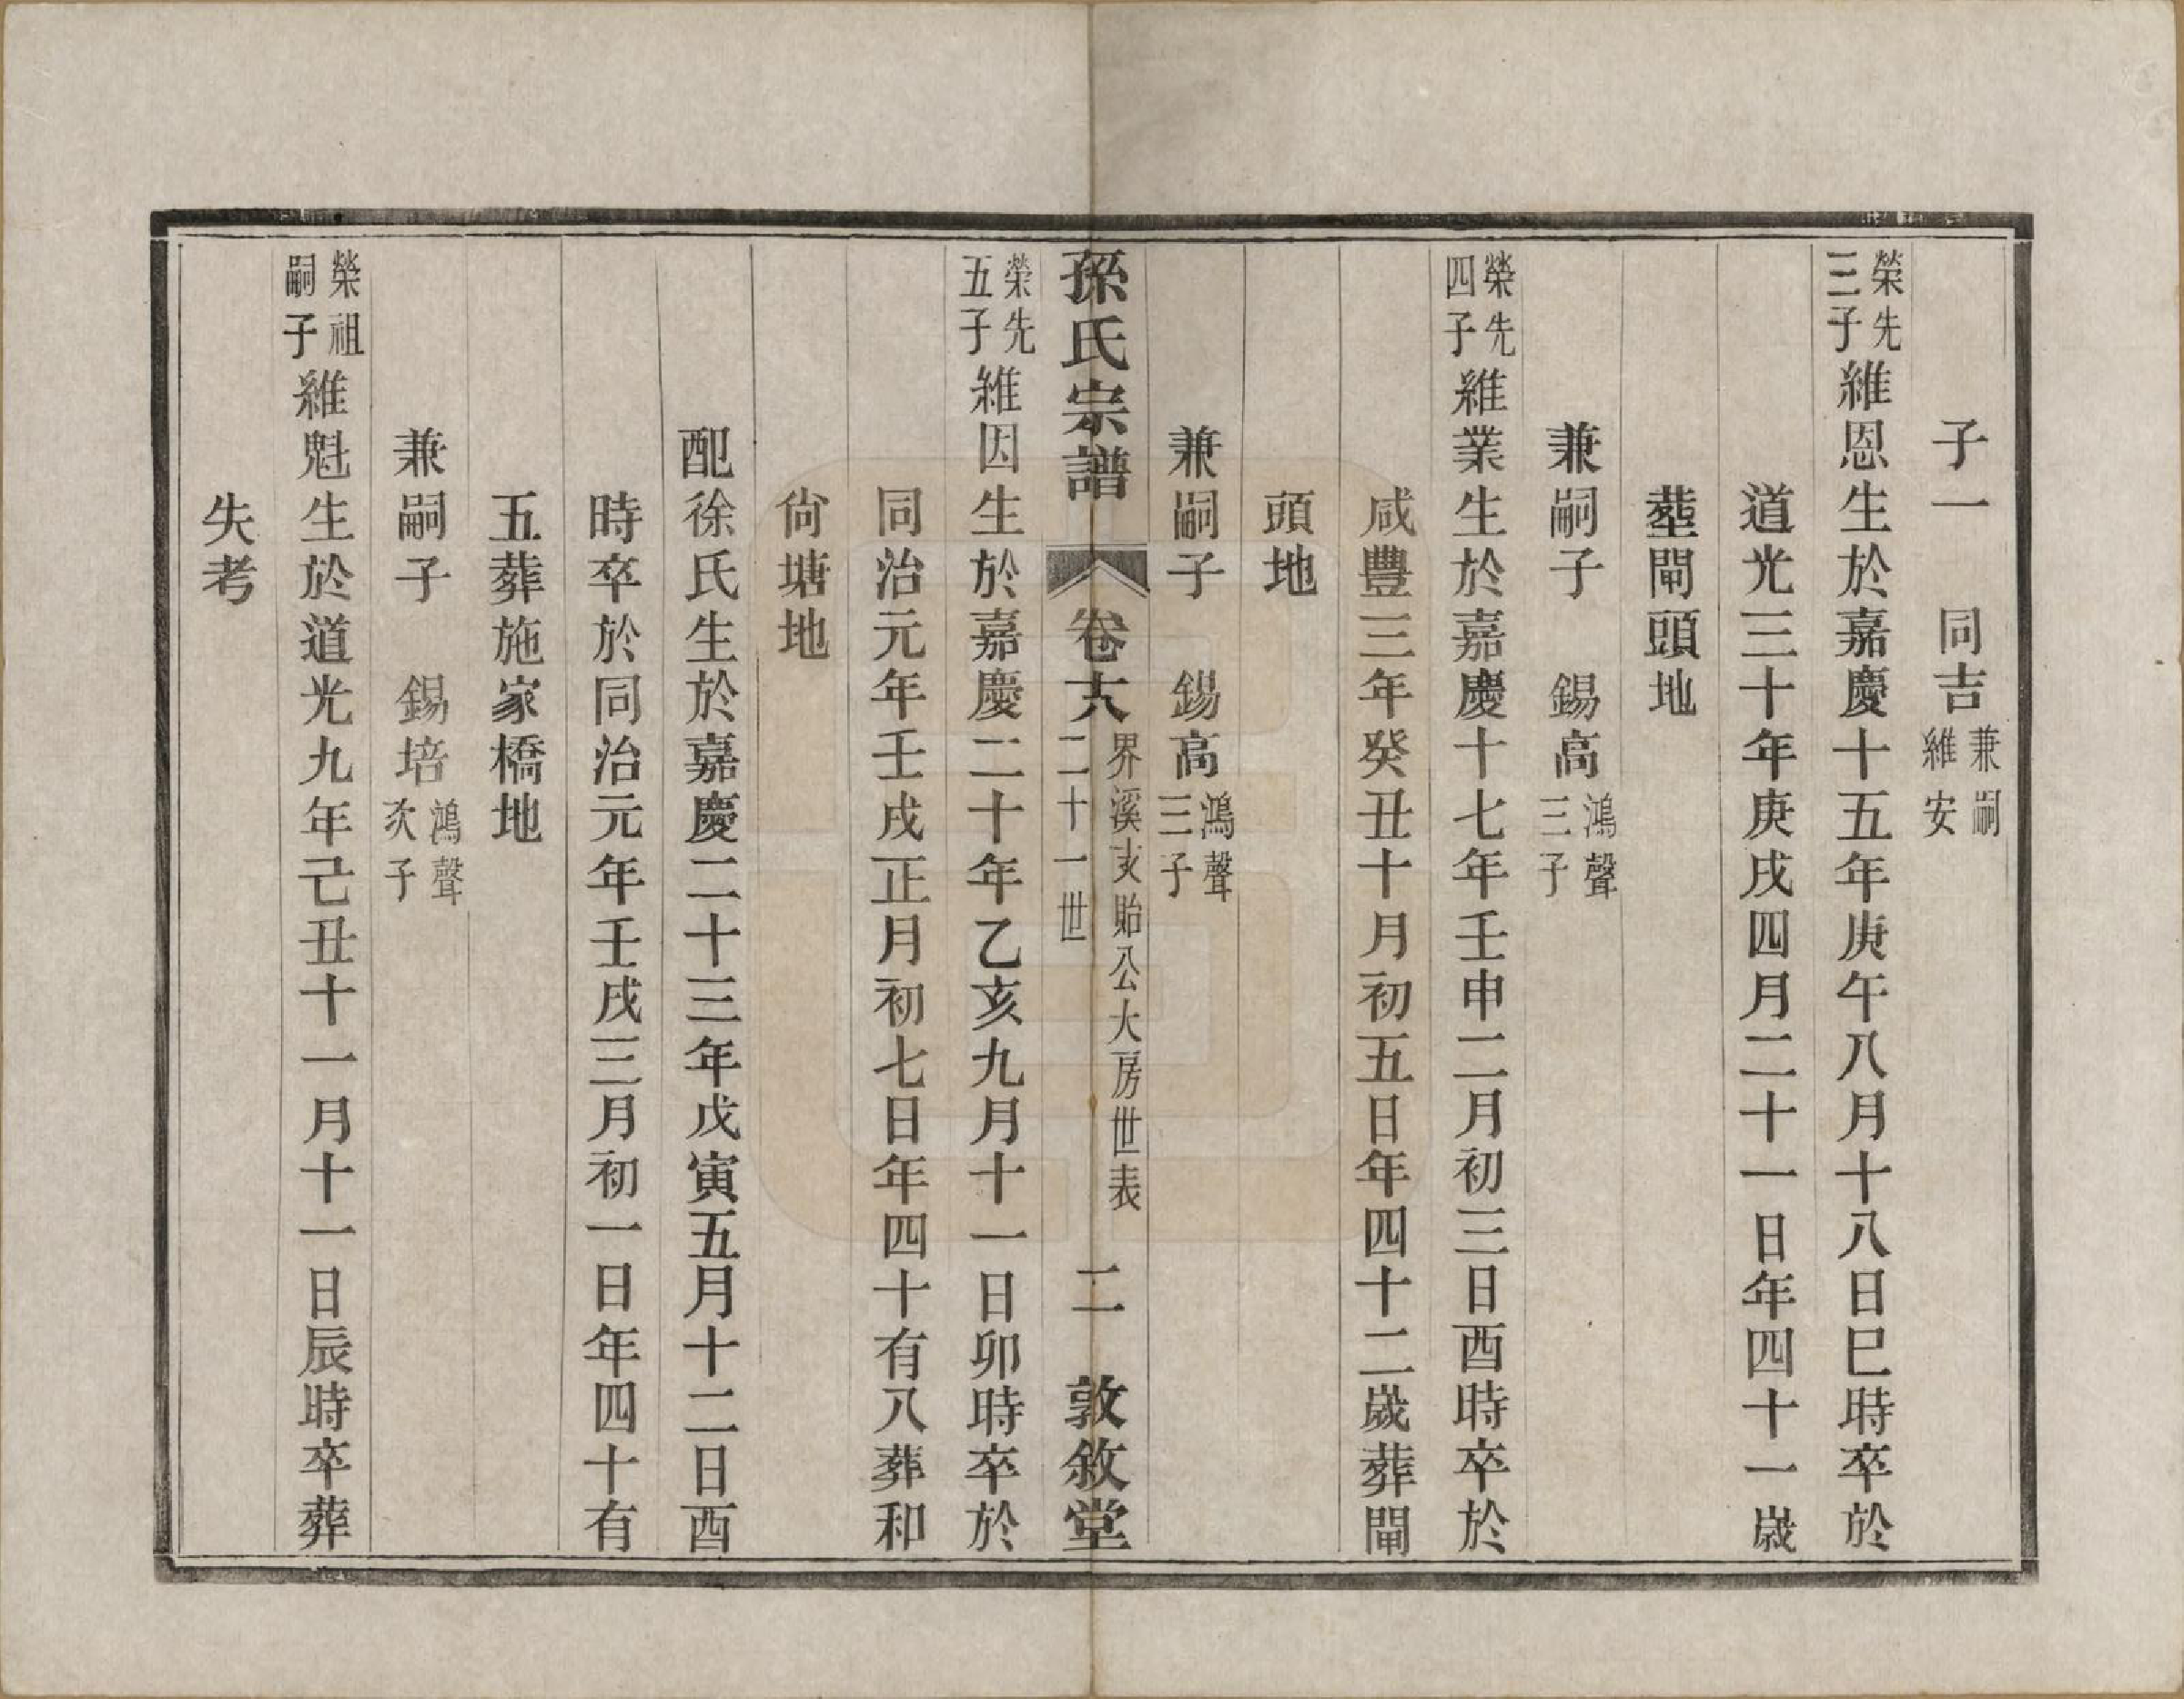 子一　同吉兼嗣維安
榮先三子維恩生於嘉慶十五年庚午八月十八日巳時卒於
道光三十年庚戌四月二十一日年四十一歲
塟閘頭地
兼嗣子　錫高鴻聲三子
榮先四子維業生於嘉慶十七年壬申二月初三日酉時卒於
咸豐三年癸丑十月初五日年四十二歲葬閘
頭地
兼嗣子　錫高鴻聲三子
孫氏宗譜　卷十六　界溪支貽公大房世表二十一世　二　敦敘堂
榮先五子維因生於嘉慶二十年乙亥九月十一日卯時卒於
同治元年壬戌正月初七日年四十有八葬和
尙塘地
配徐氏生於嘉慶二十三年戊寅五月十二日酉
時卒於同治元年壬戌三月初一日年四十有
五葬施家橋地
兼嗣子　錫培鴻聲次子
榮祖嗣子維魁生於道光九年己丑十一月十一日辰時卒葬
失考